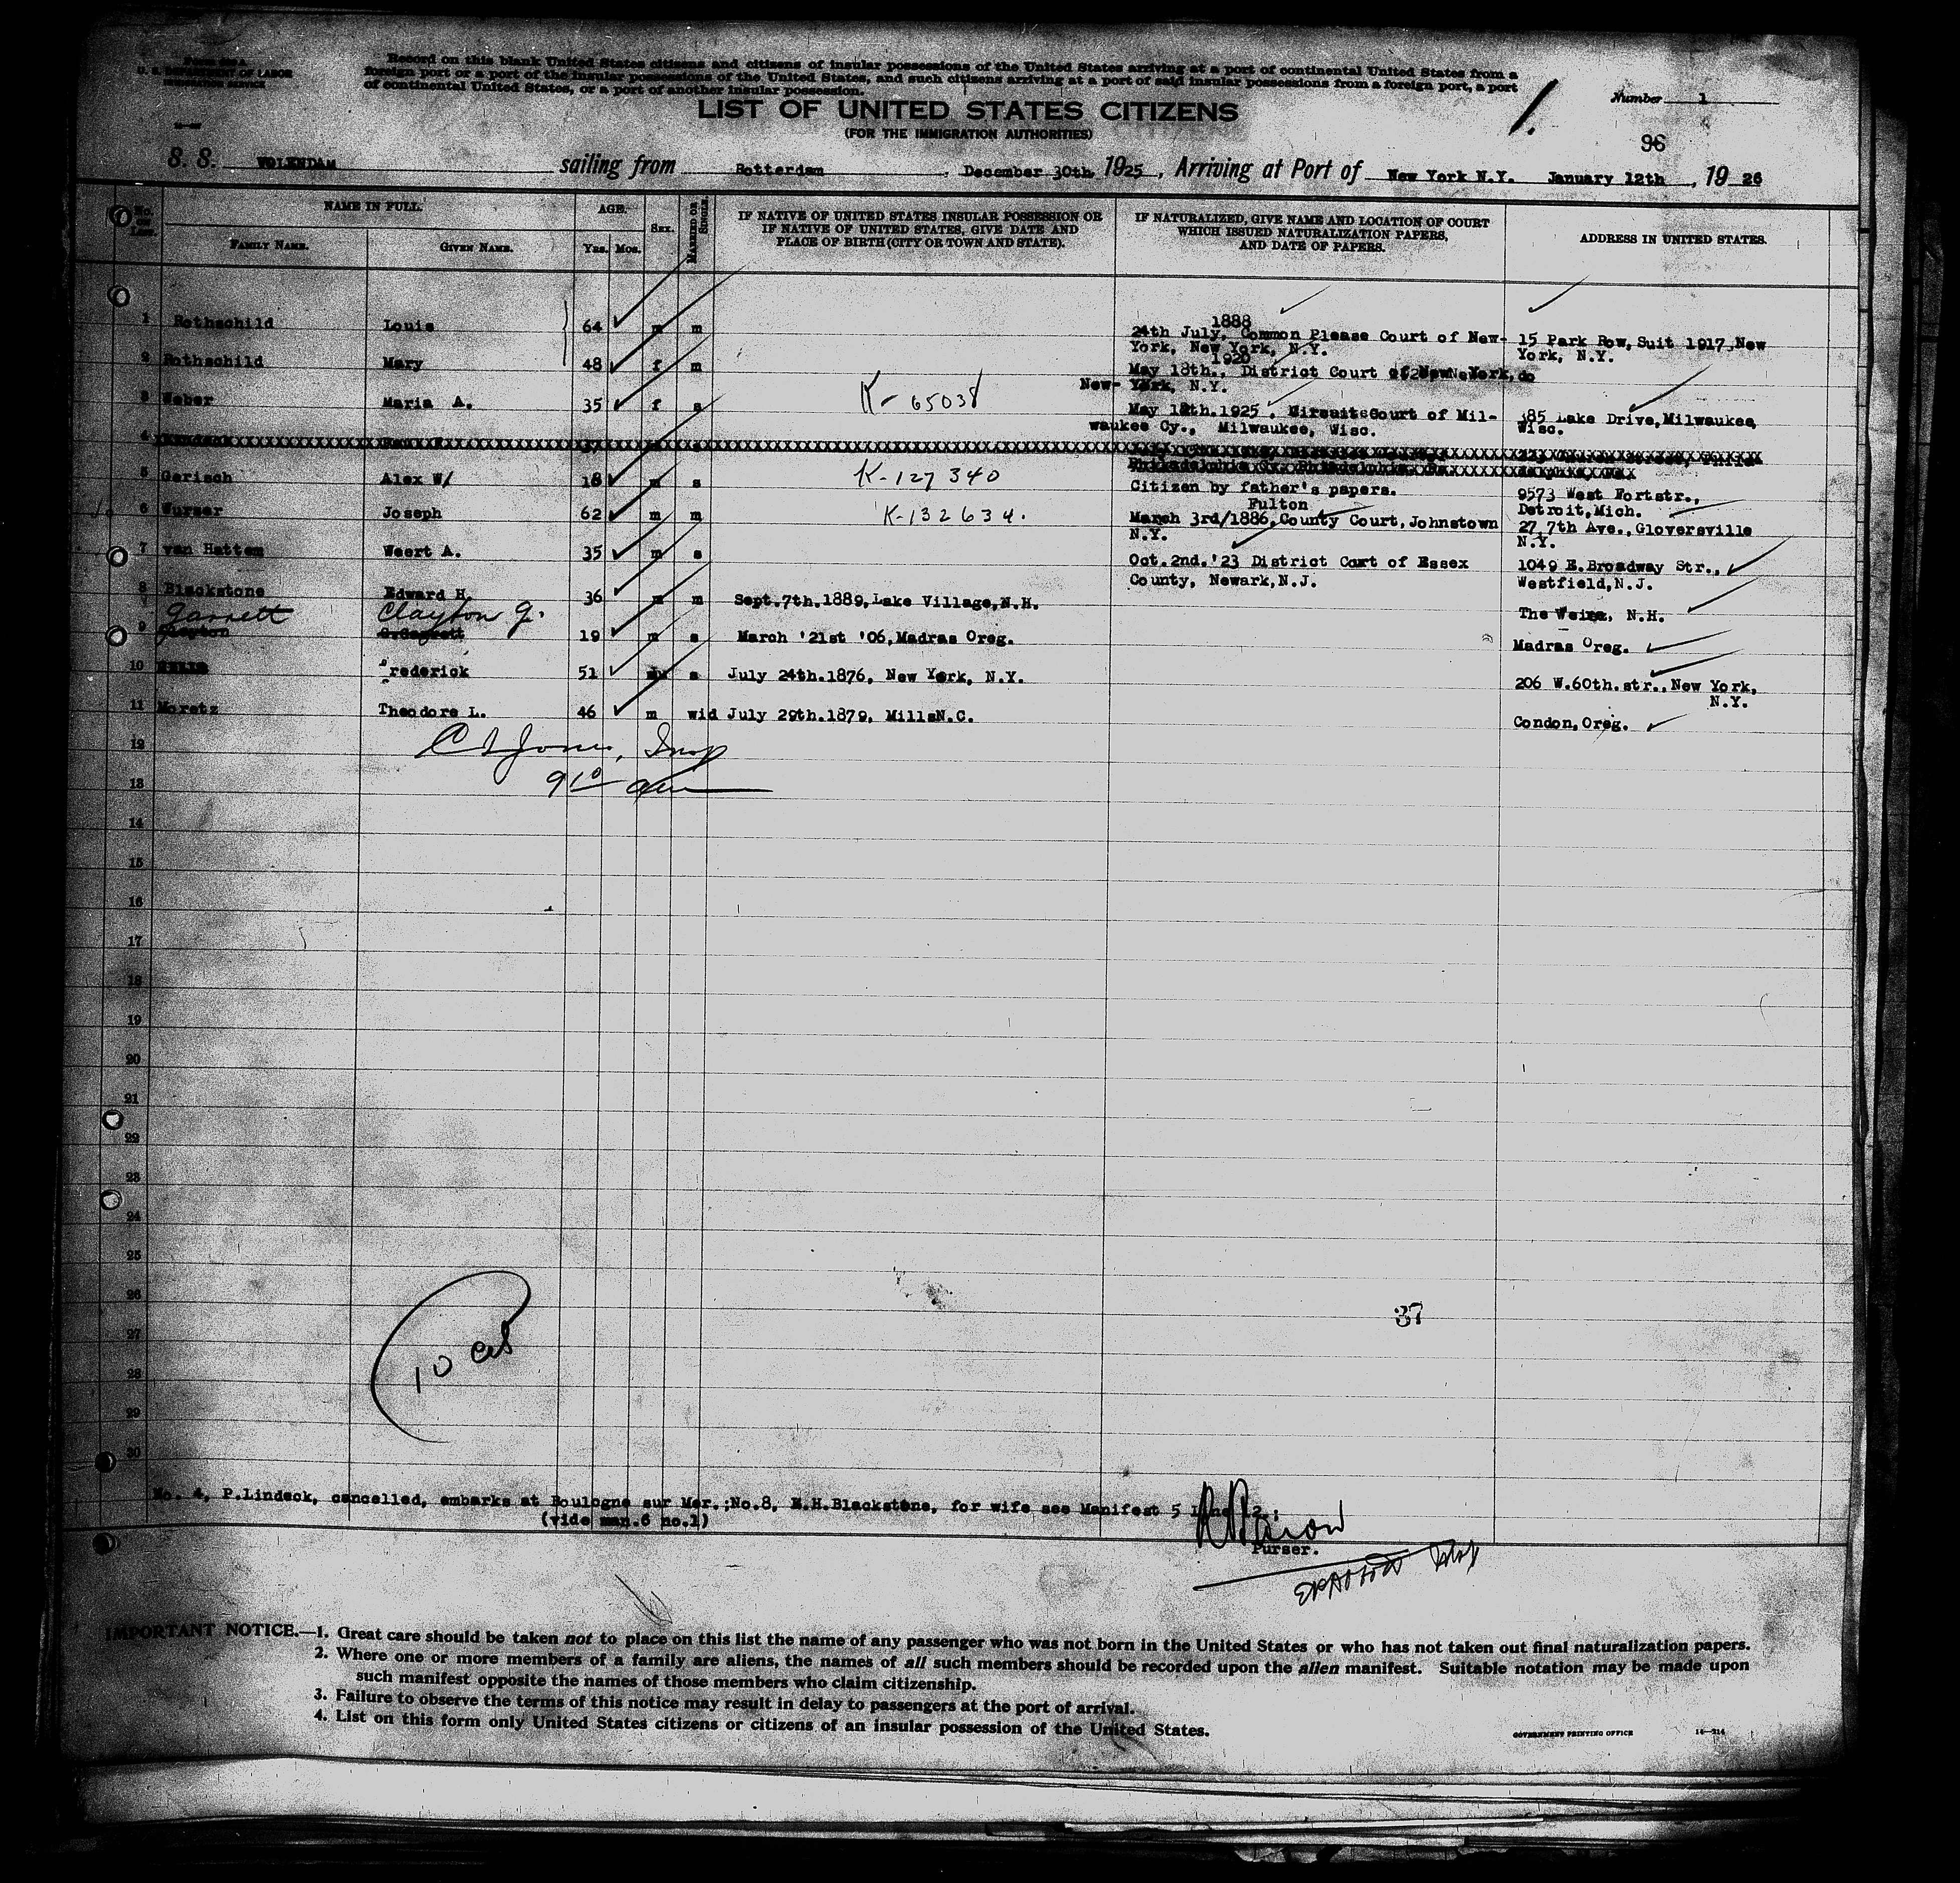 U. S. DEPARTMENT OF LABOR
IMMIGRATION SERVICE
Record on this blank United States citizens and citizens of insular possessions of the United States arriving at a port of continental United States from a
foreign port or a port of the insular possessions of the United States, and such citizens arriving at a port of said insular possessions from a foreign port, a port
of continental United States, or a port of another insular possession.
LIST OF UNITED STATES CITIZENS
(FOR THE IMMIGRATION AUTHORITIES)
Number 1
1.
96
S. S. VOLENDAM sailing from Rotterdam, December 30th, 1925, Arriving at Port of New York N.Y. January 12th, 1926
No. on List.
NAME IN FULL.
FAMILY NAME. GIVEN NAME.
AGE.
Yrs. Mos.
SEX.
MARRIED OR SINGLE.
IF NATIVE OF UNITED STATES INSULAR POSSESSION OR
IF NATIVE OF UNITED STATES, GIVE DATE AND
PLACE OF BIRTH (CITY OR TOWN AND STATE).
IF NATURALIZED, GIVE NAME AND LOCATION OF COURT
WHICH ISSUED NATURALIZATION PAPERS,
AND DATE OF PAPERS.
ADDRESS IN UNITED STATES.
1 Rothschild Louis 64 m m 24th July, 1888 Common Please Court of New-
York, New York, N.Y.
15 Park Row, Suit 1917, New
York, N.Y.
2 Rothschild Mary 48 f m May 18th., 1920 District Court of New York,
New-York, N.Y.
do
3 Weber Maria A. 35 f s K-65038 May 18th.1925, Court of Mil-
waukee Cy., Milwaukee, Wisc.
385 Lake Drive, Milwaukee,
Wisc.
4
5 Gerisch Alex W/ 18 m s K-127340 Citizen by father's papers.
9573 West Fortstr.,
Detroit, Mich.
6 Wurser Joseph 62 m m K-132634. March 3rd/1886, Fulton County Court, Johnstown
N.Y.
27, 7th Ave., Gloversville
N.Y.
7 van Hattem Weert A. 35 m s Oct. 2nd. '23 District Cort of Essex
County, Newark, N.J.
1049 E. Broadway Str.,
Westfield, N.J.
8 Blackstone Edward H. 36 m m Sept. 7th. 1889, Lake Village, N.H. The Weirs, N.H.
Garrett Clayton G.
9 Clayton G. Garrett 19 m s March '21st '06, Madras Oreg. Madras Oreg.
10 Frederick 51 s July 24th. 1876, New York, N.Y. 206 W. 60th. str., New York,
N.Y.
11 Moretz Theodore L. 46 m wid July 29th. 1879, Mills N.C. Condon, Oreg.
12
13
14
15
16
17
18
19
20
21
22
23
24
25
26
27
28
29
30
37
No. 4, P. Lindeck, cancelled, embarks at Boulogne sur Mer.; No. 8, E.H. Blackstone, for wife see Manifest 5 Line 12.;
(vide man. 6 no. 1)
Purser.
IMPORTANT NOTICE.—1. Great care should be taken not to place on this list the name of any passenger who was not born in the United States or who has not taken out final naturalization papers.
2. Where one or more members of a family are aliens, the names of all such members should be recorded upon the alien manifest. Suitable notation may be made upon
such manifest opposite the names of those members who claim citizenship.
3. Failure to observe the terms of this notice may result in delay to passengers at the port of arrival.
4. List on this form only United States citizens or citizens of an insular possession of the United States.
GOVERNMENT PRINTING OFFICE 14—214